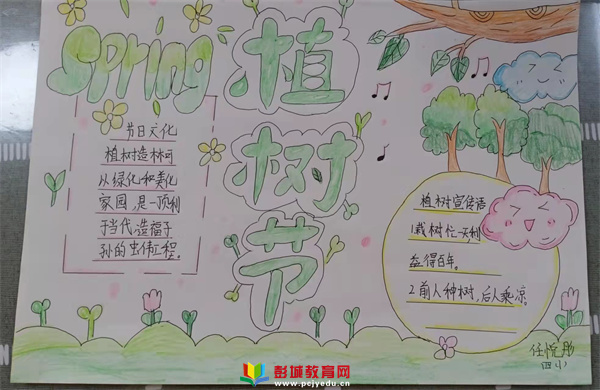 Spring
植树节
节日文化
植树造林可
从绿化和美化
家园,是一项利
于当代,造福子
孙的
工程。
植树宣传语
1栽树忙一天利
益得百年。
2前人种树,后人乘凉。
任悦彤
四小
彭城教育网
www.pcjyedu.cn